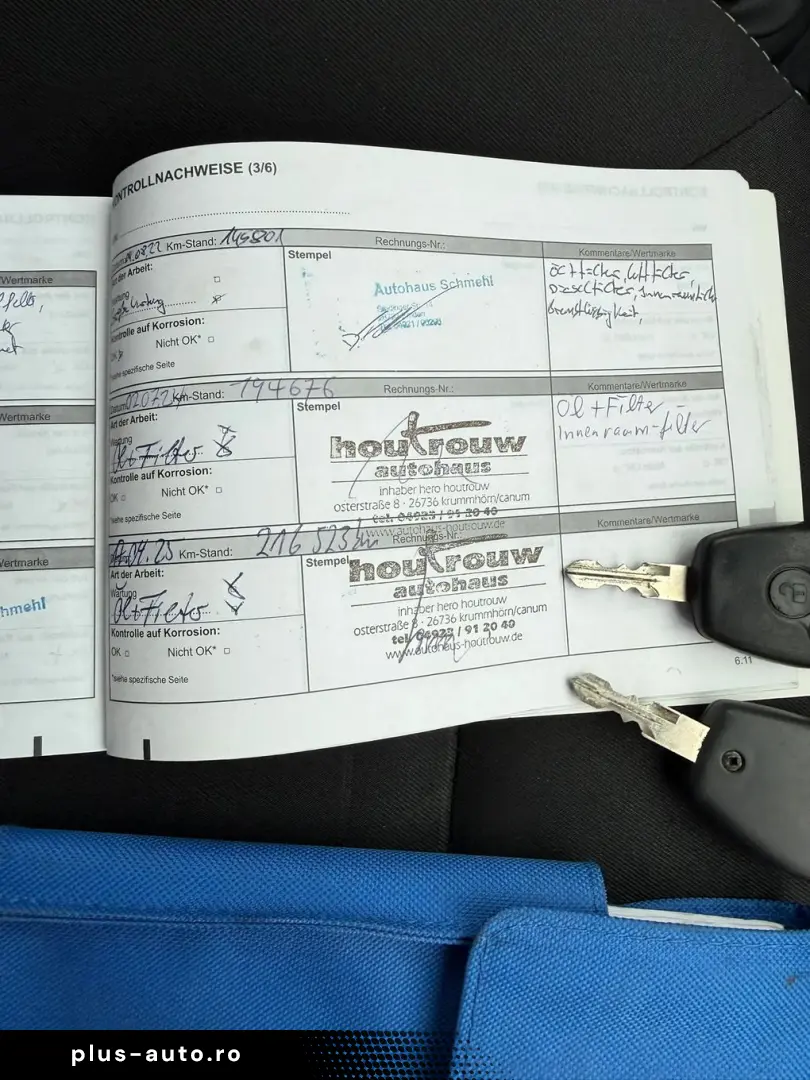 KONTROLLNACHWEISE (3/6)
Km-Stand: 145801
Rechnungs-Nr.:
Art der Arbeit:
Stempel
Kommentare/Wertmarke
Wartung
Autohaus Schmehl
Ölfilter, Luftfilter,
Dieselfilter, Innenraumfilter
Bremsflüssigkeit,
Kontrolle auf Korrosion:
OK
Nicht OK*
*siehe spezifische Seite
/Wertmarke
Datum
Km-Stand: 194676
Rechnungs-Nr.:
Kommentare/Wertmarke
Art der Arbeit:
Stempel
Wartung
Öl+Filter
houtrouw
autohaus
inhaber hero houtrouw
osterstraße 8 · 26736 krummhörn/canum
tel. 04923 / 91 20 40
www.autohaus-houtrouw.de
Öl + Filter
Innenraum-filter
Kontrolle auf Korrosion:
OK
Nicht OK*
*siehe spezifische Seite
Wertmarke
17.04.25 Km-Stand: 216 523 km
Rechnungs-Nr.:
Kommentare/Wertmarke
Art der Arbeit:
Stempel
Wartung
Öl+Filter
houtrouw
autohaus
inhaber hero houtrouw
osterstraße 8 · 26736 krummhörn/canum
tel. 04923 / 91 20 40
www.autohaus-houtrouw.de
Kontrolle auf Korrosion:
OK
Nicht OK*
*siehe spezifische Seite
Wertmarke
hmehl
6.11
plus-auto.ro